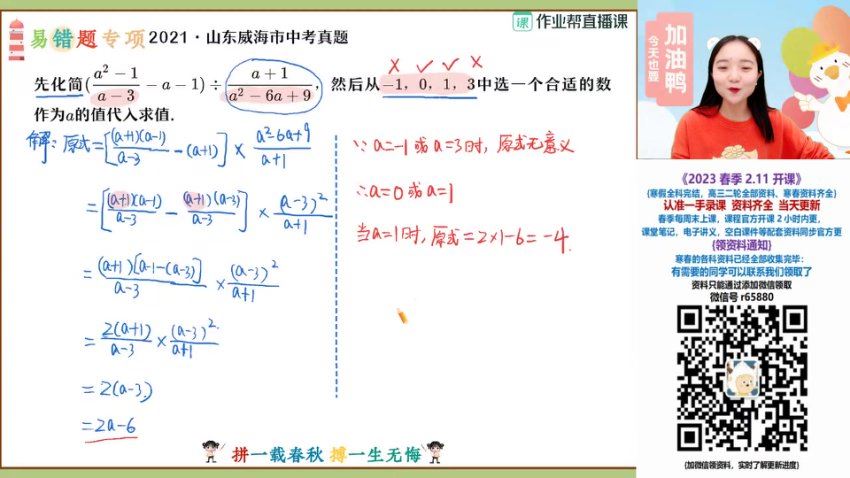 易错题专项 2021·山东威海市中考真题
课 作业帮直播课
先化简((a²-1)/(a-3) - a - 1) ÷ (a+1)/(a²-6a+9), 然后从-1, 0, 1, 3中选一个合适的数
× ✓ ✓ ×
作为a的值代入求值.
解:原式=[(a+1)(a-1)/(a-3) - (a+1)] × (a²-6a+9)/(a+1)
=[(a+1)(a-1)/(a-3) - (a+1)(a-3)/(a-3)] × (a-3)²/(a+1)
=(a+1)[a-1-(a-3)]/(a-3) × (a-3)²/(a+1)
=2(a+1)/(a-3) × (a-3)²/(a+1)
=2(a-3)
=2a-6
∵ a=-1 或 a=3时, 原式无意义
∴a=0 或 a=1
当a=1时, 原式=2×1-6=-4.
拼一载春秋 搏一生无悔
今天也要
加油鸭
《2023 春季 2.11 开课》
(寒假全科完结，高三二轮全部资料、寒春资料齐全)
认准一手录课 资料齐全 当天更新
春季每周末上课，课程官方开课 2 小时内更，
课堂笔记、电子讲义，空白课件等配套资料同步官方更
(领资料通知)
寒春的各科资料已经全部收集完毕：
有需要的同学可以联系我们领取了
资料只能通过添加微信领取
微信号 r65880
(加微信领资料，实时了解更新进度)